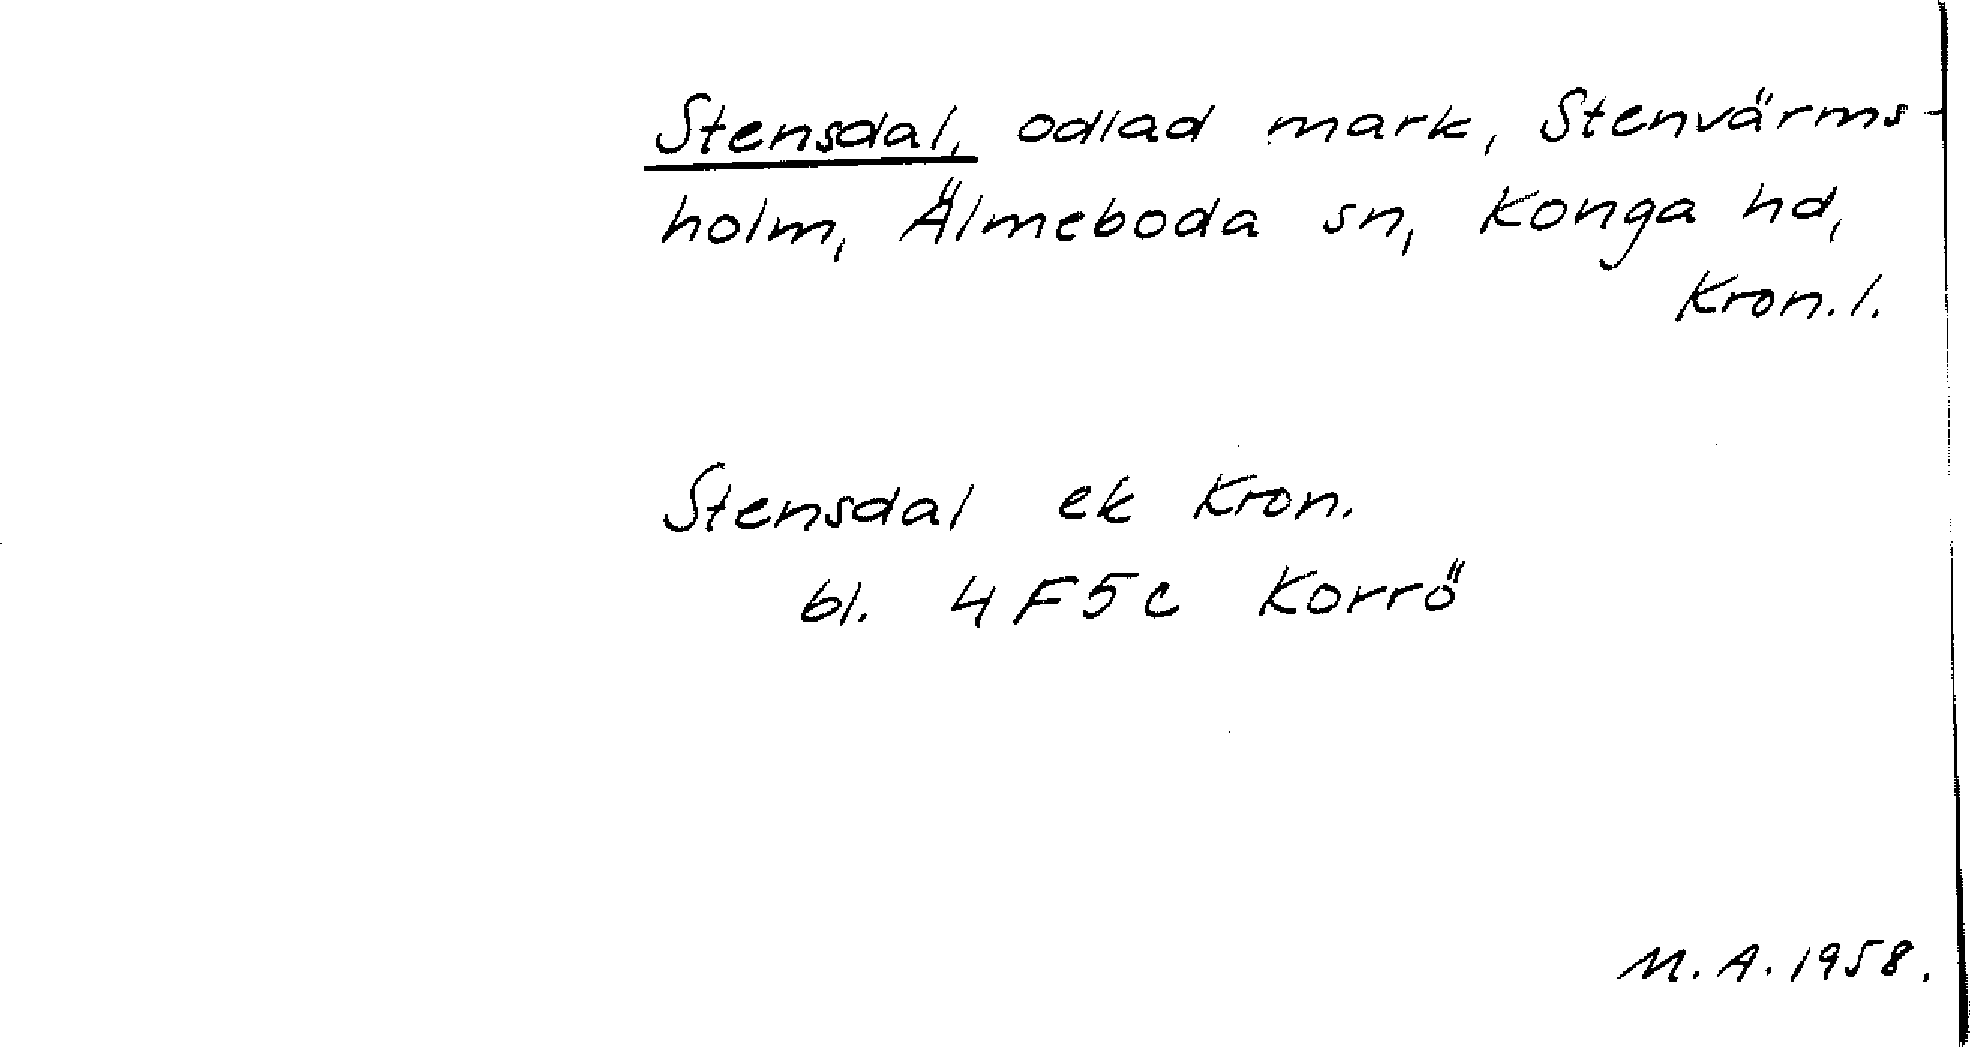 Stensdal, odlad mark, Stenvärms-
holm, Älmeboda sn, Konga hd,
Kron. l.
Stensdal ek Kron.
bl. 4F5c Korrö
M.A. 1958.